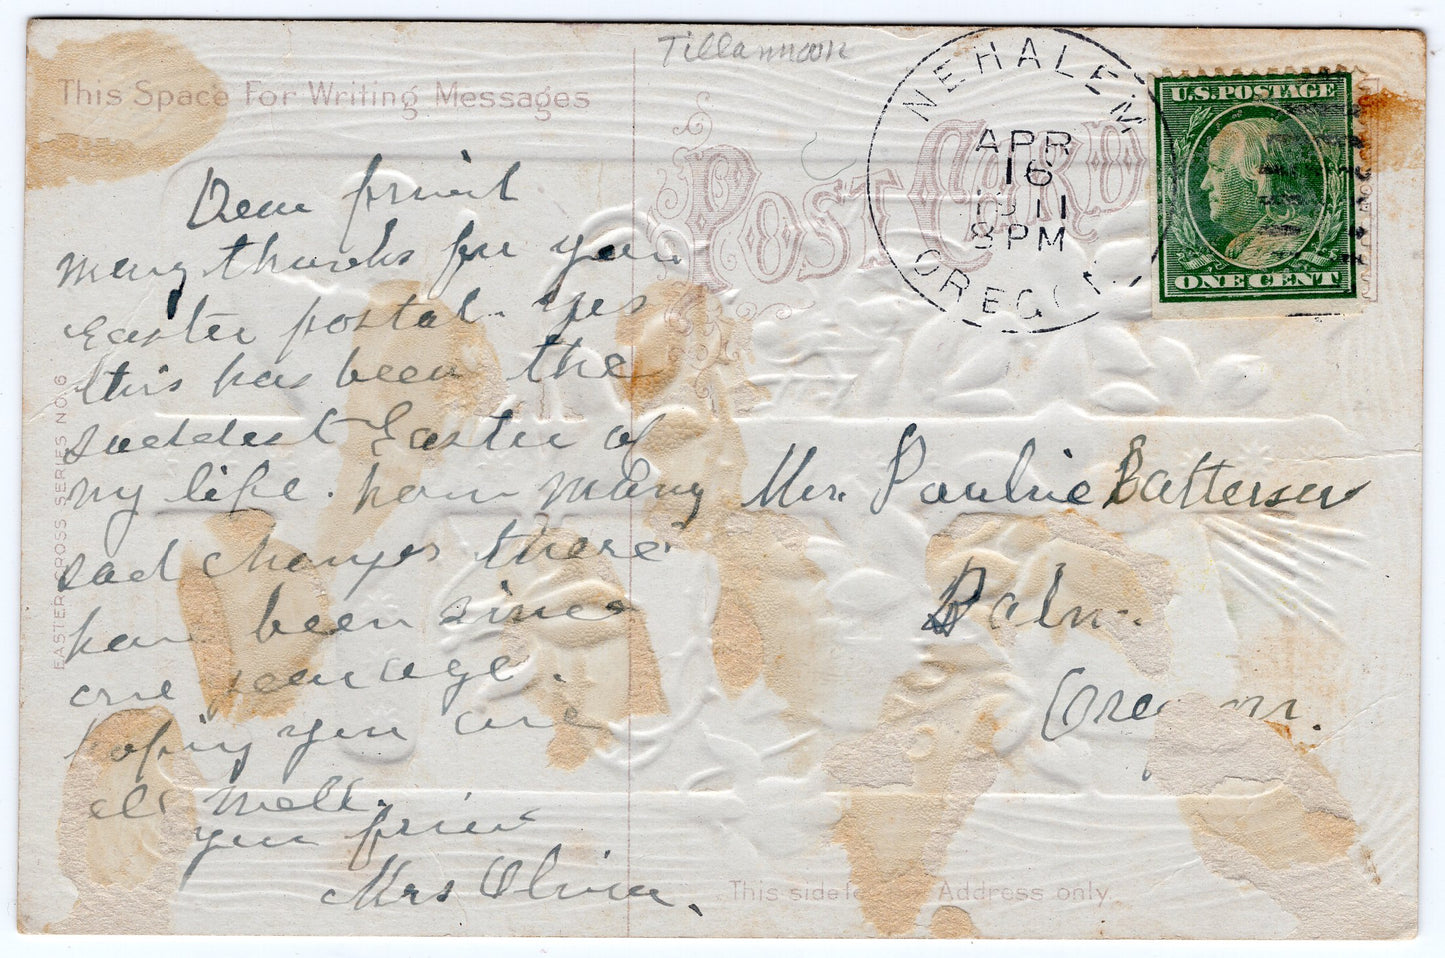 Tillamook
This Space For Writing Messages
POST CARD
NEHALEM
APR
16
1911
8PM
OREGON
U.S. POSTAGE
ONE CENT
EASTER CROSS SERIES NO. 6
Dear friend
many thanks for your
Easter postal. yes
this has been the
saddest Easter of
my life. how many
sad changes there
have been since
one year ago.
hoping you are
all well.
your friend
Mrs Oliver.
Mrs. Pauline Battersen
Oregon.
This side for Address only.